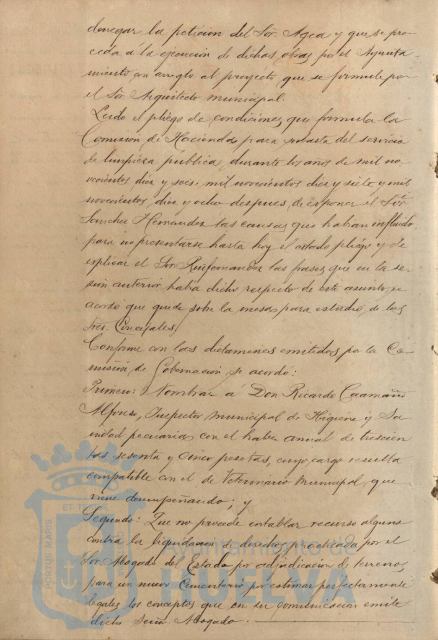 denegar la petición del Sr. Agea y que se pro-
ceda a la ejecución de dichas obras por el Ayunta
miento con arreglo al proyecto que se formule por
el Sr. Arquitecto municipal.
Leido el pliego de condiciones que formula la
Comisión de Hacienda para subasta del servicio
de limpieza pública durante los años de mil no-
vecientos diez y seis, mil novecientos diez y siete y mil
novecientos diez y ocho despues de esponer el Sr.
Sanchez Hernandez las causas que habian influido
para no presentarse hasta hoy el citado pliego y de
esplicar el Sr. las frases que en la se-
sion anterior habia dicho respecto de este asunto, se
acordó que quede sobre la mesa para estudio de los
Sres. Concejales.
Conforme con los dictamenes emitidos por la Co-
misión de Gobernación se acordó:
Primero: Nombrar á Don Ricardo Caamaño
Alfonso, Inspector Municipal de Higiene y Sa-
nidad pecuaria con el haber anual de trescien
tas sesenta y cinco pesetas, cuyo cargo resulta
compatible con el de Veterinario Municipal que
viene desempeñando; y
Segundo: Que no procede entablar recurso alguno
contra la liquidacion de derechos practicada por el
Sr. Abogado del Estado por adjudicacion de terrenos
para un nuevo Cementerio por estimar perfectamente
legales los conceptos que en su comunicacion emite
dicho Señor Abogado.
PORTUS MARIS ET TERRAE
HUELVA